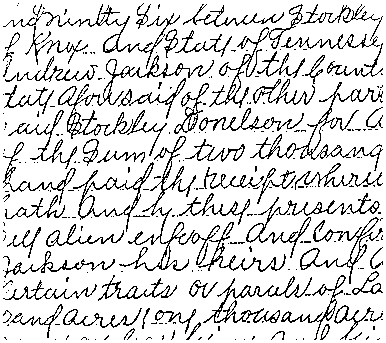 and ninetty Six between Stockley
f Knox and State of Tennesse
Andrew Jackson of the Count
tate aforesaid of the other par
aid Stockley Donelson for a
f the Sum of two thousand
hand paid the receipt where
hath and by these presents
ell alien enfeoff and Confir
Jackson his heirs and a
Certain traits or parcels of La
sand acres (one thousand acre